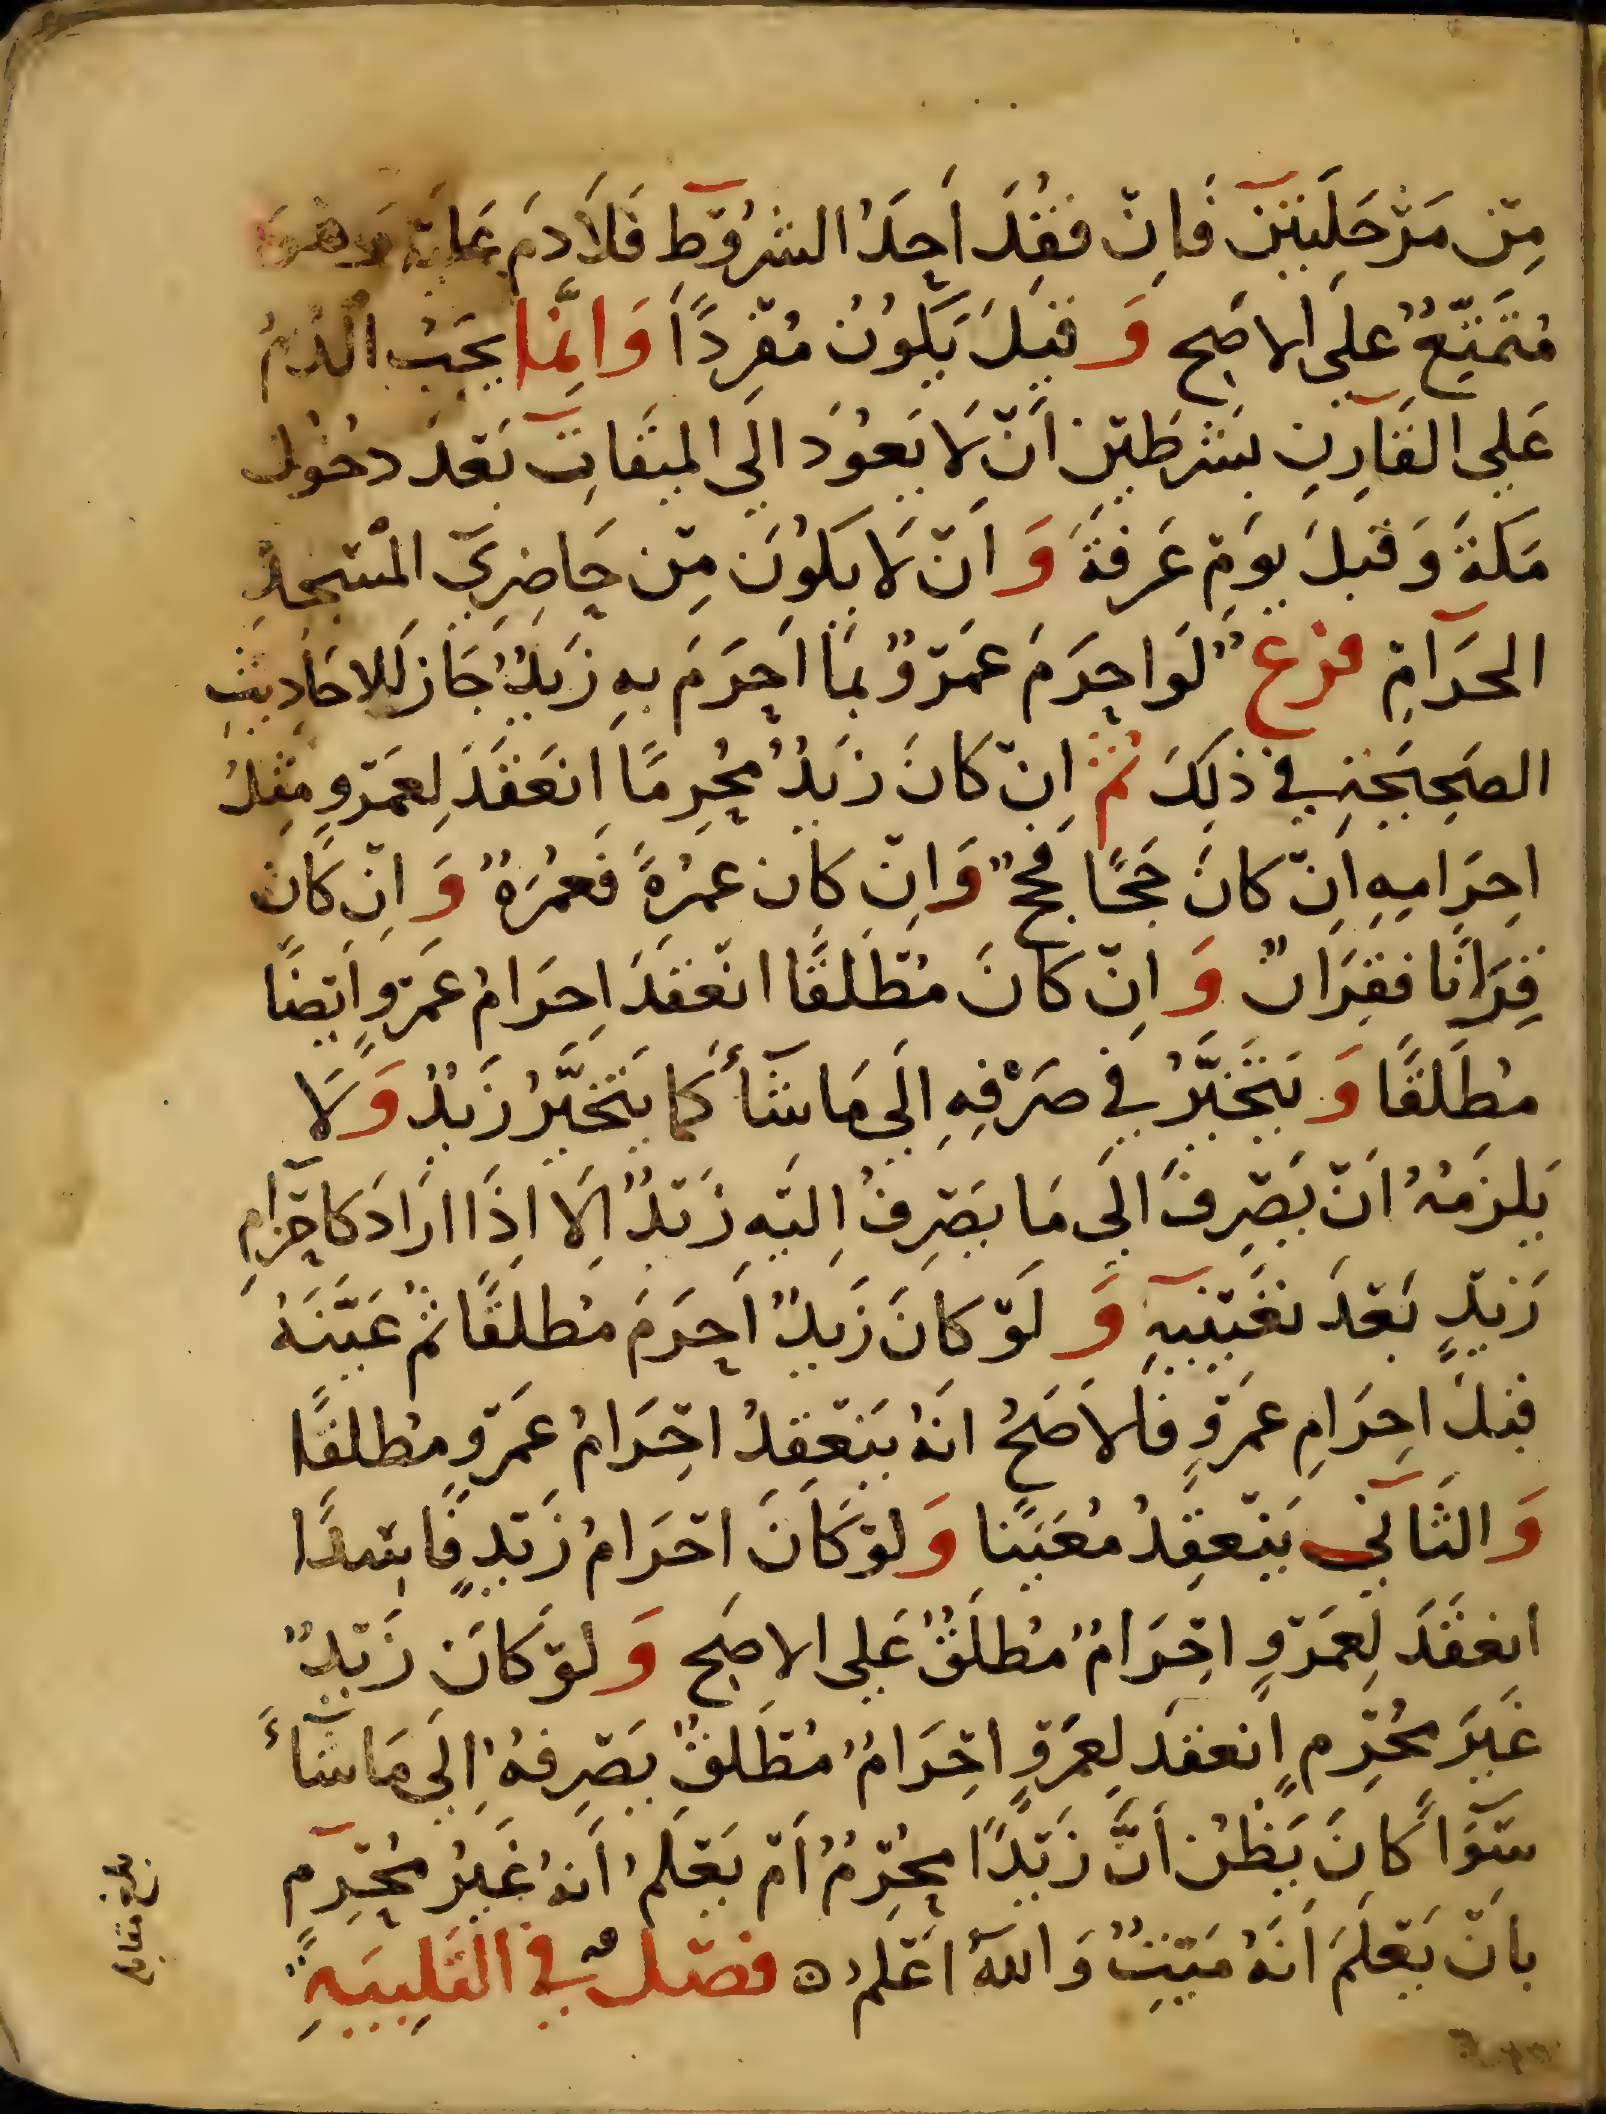 مِنْ مَرْحَلَتَيْنِ فَاِنْ فُقِدَ اَحَدُ الشُرُوْطِ فَلَا دَمَ عَلَيْهِ وَهُوَ
مُتَمَتِّعٌ عَلَى الاَصَح وَ قِيْلَ يَكُوْنُ مُفْرِدًا وَاِنَّمَا يَجِبُ الدَمُ
عَلَى القَارِنِ بِشَرْطَيْنِ اَنْ لَا يَعُوْدَ اِلَى المِيْقَاتِ بَعْدَ دخُوْلِ
مَكةَ وَقَبْلَ يَوْمِ عَرفَةَ وَ اَنْ لَا يَكُوْنَ مِنْ حَاضِرِي المَسْجِدِ
الحَرَامِ فَرْعٌ لَو احرَمَ عَمْرٌو بِمَا اَحرَمَ بِهِ زَيْدٌ جَازَ لِلاحَادِيثِ
الصَحِيحَةِ فِي ذلِكَ ثُمَّ اِنْ كَانَ زَيْدٌ مُحْرِمًا انعَقَدَ لِعَمْرٍو مِثْلُ
احرَامِهِ اِنْ كَانَ حَجًا فَحَجٌ وَاِنْ كَانَ عمْرَةً فَعُمْرَةٌ وَ اِنْ كَانَ
قِرَانًا فَقِرَانٌ وَ اِنْ كَانَ مُطْلَقًا انْعَقَدَ اِحرَامُ عَمْرٍو اَيْضًا
مُطْلَقًا وَ يَتَخَيَّرُ فِي صَرْفِهِ اِلَى مَا شَآءَ كَمَا يَتَخَيَّرُ زَيْدٌ وَ لَا
يَلزَمُهُ اَنْ يَصْرِفَ اِلَى مَا يَصْرِفُ اِلَيْهِ زَيْدٌ اِلَا اِذَا ارَادَ كَاحْرَامِ
زَيْدٍ بَعْدَ تَعْيِيْنِهِ وَ لَوْ كَانَ زَيْدٌ اَحرَمَ مُطلَقًا ثمَّ عَيَّنَهُ
قَبْلَ احرَامِ عَمْرٍو فَالاَصَحُ اَنهُ يَنْعَقِدُ احْرَامُ عَمْرٍو مُطلقًا
وَ الثَانِي يَنْعَقِدُ مُعَيَنا وَ لوْ كَانَ احْرَامُ زَيْدٍ فَاسِدًا
انعَقَدَ لِعَمْرٍو احْرَامٌ مُطلَقٌ عَلَى الاصَح وَ لوْ كَانَ زَيْدٌ
غَيْرَ مُحْرِمٍ اِنعقدَ لِعَمْرٍو احْرَامٌ مُطْلَقٌ يَصْرِفهُ اِلَى مَا شَآءَ
سَوَآءً كَانَ يَظُن اَنَّ زَيْدًا مُحْرِمٌ اَمْ يَعْلَمُ اَنهُ غَيْرُ مُحْرِمٍ
بِاَنْ يَعْلَمَ اَنَهُ مَيْتٌ وَ اللهُ اَعْلمُ ه فصْلٌ فِي التَلبِيَةِ
بلغ مقابله